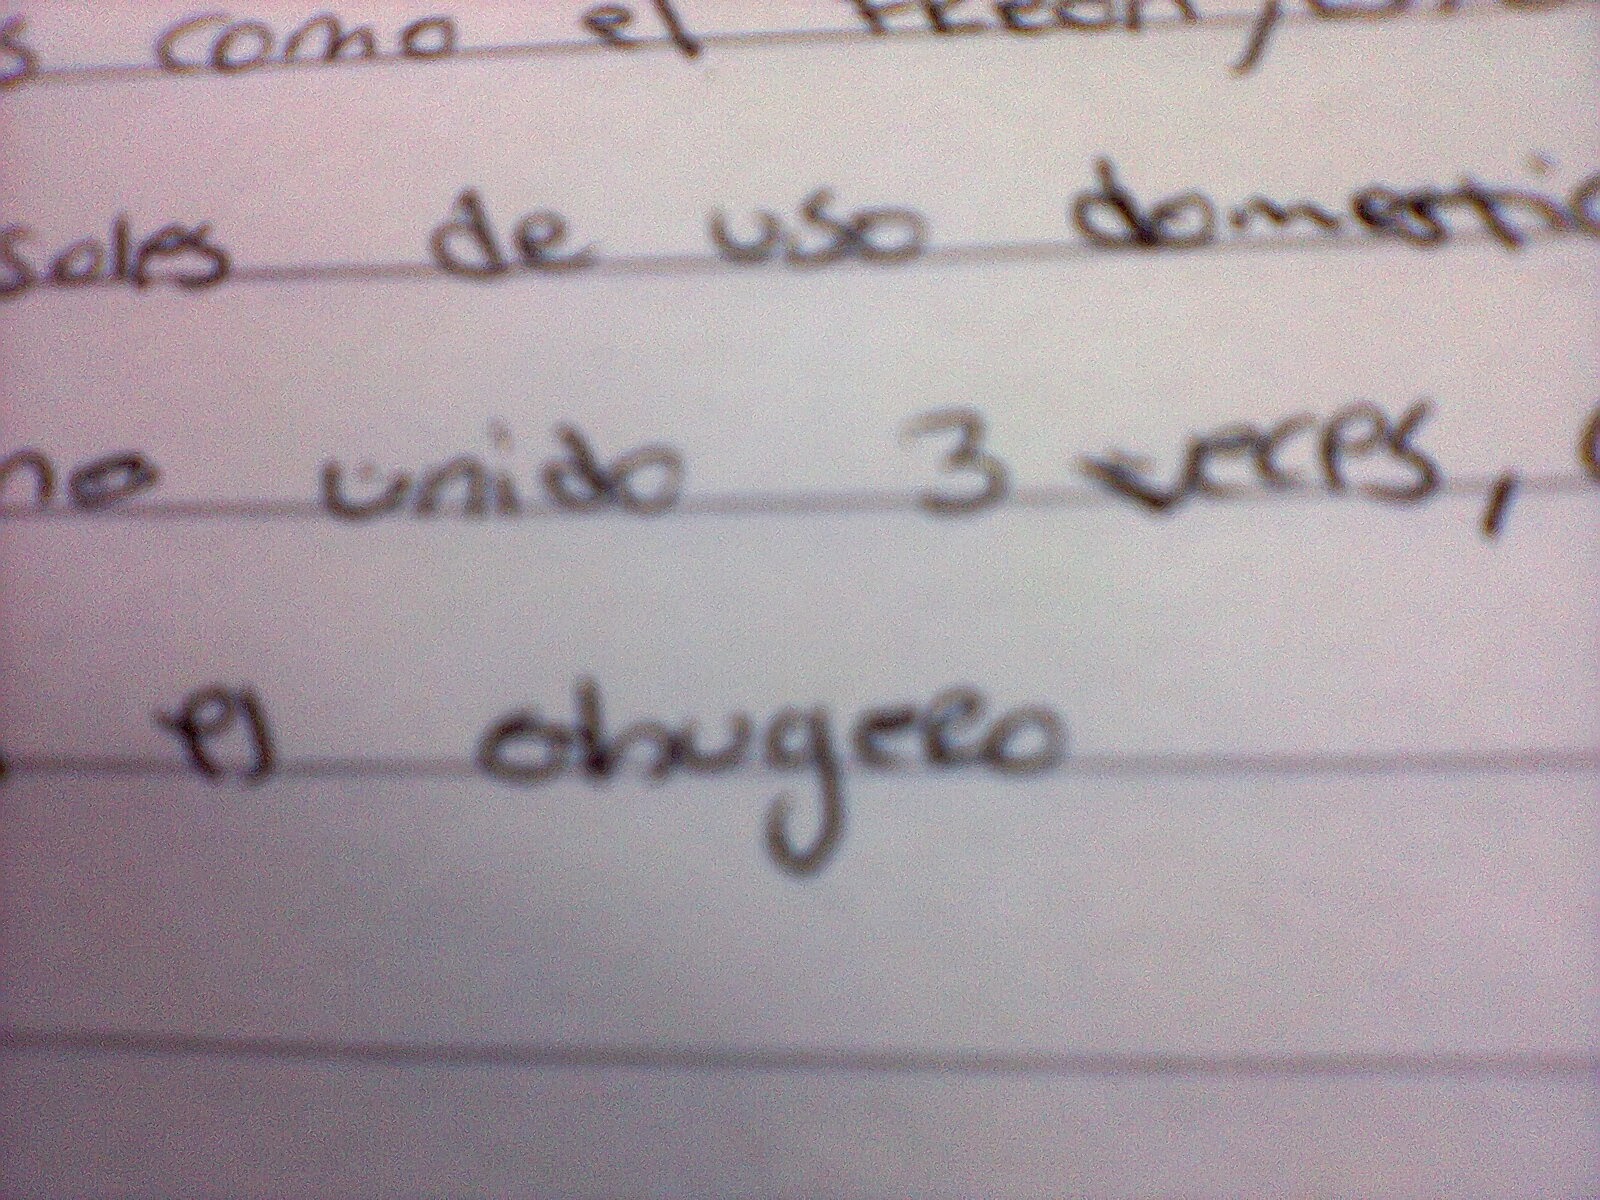 s como el freon,
soles de uso domestic
no unido 3 veces,
el ahugero